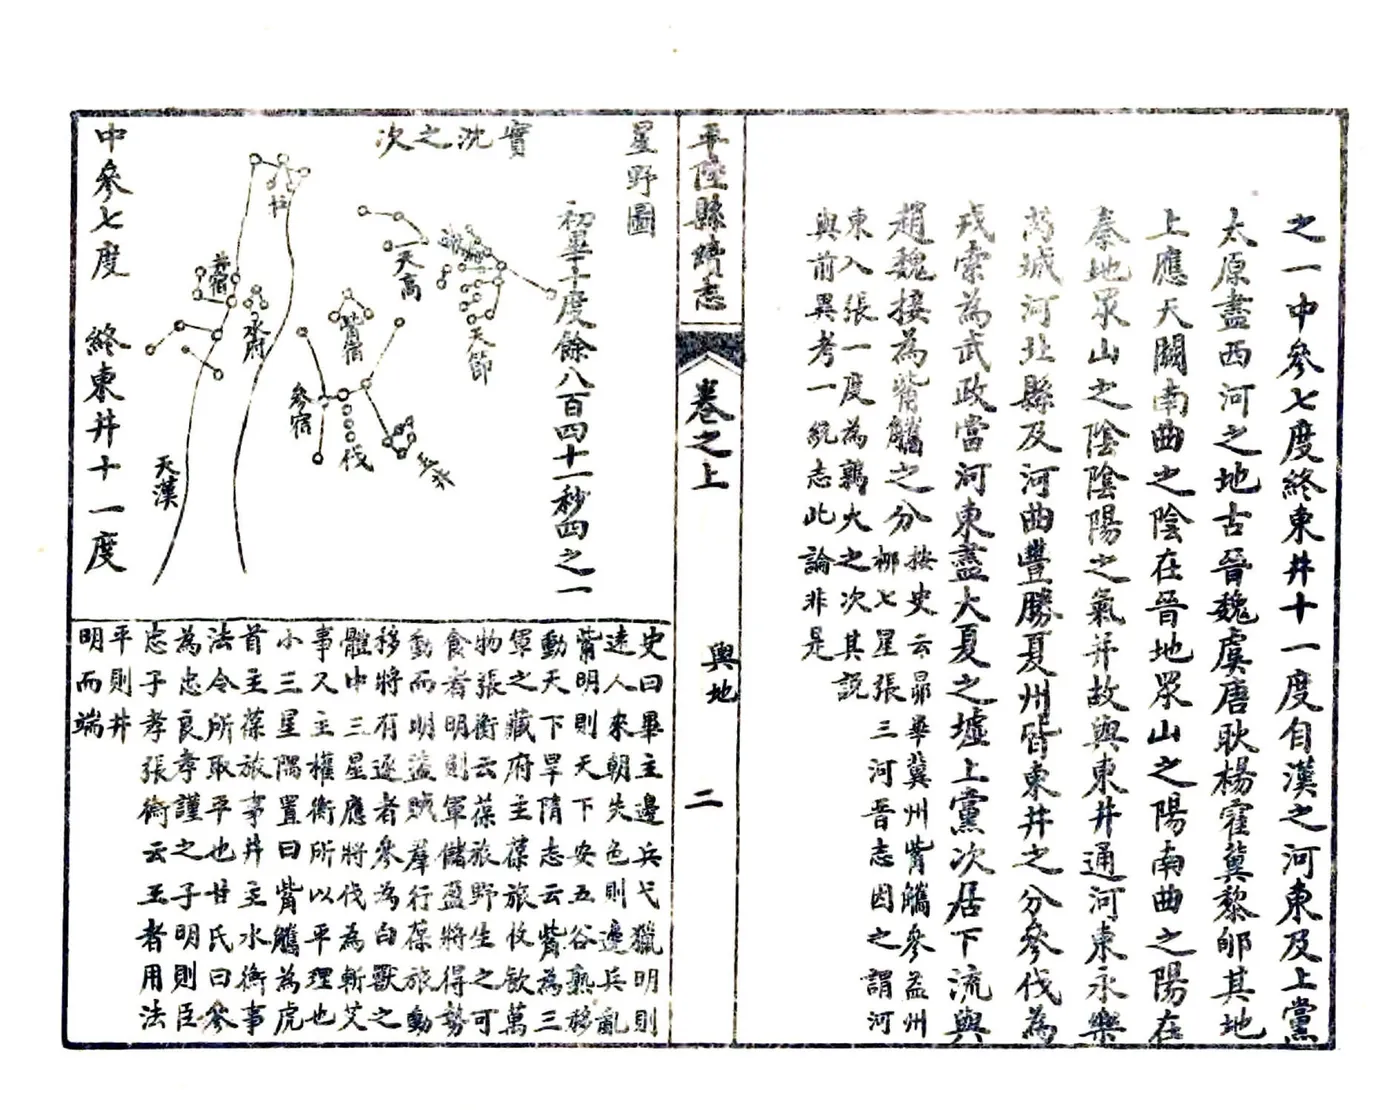 之一中參七度終東井十一度自漢之河東及上黨
太原盡西河之地古晉魏虞唐耿楊霍冀黎郇其地
上應天闗南曲之陰在晉地眾山之陽南曲之陽在
秦地眾山之陰陰陽之氣并故與東井通河東永樂
芮城河北縣及河曲豐勝夏州皆東井之分參伐為
戎索為武政當河東盡大夏之墟上黨次居下流與
趙魏接為觜觿之分
按史云昴畢冀州觜觿參益州
柳七星張三河晉志因之謂河
東入張一度為鶉火之次其說
與前異考一統志此論非是
平陸縣續志
卷之上
輿地
二
星野圖
實沈之次
初畢十度餘八百四十一秒四之一
中參七度
終東井十一度
天高
天節
觜宿
參宿
伐
玉井
井宿
水府
天漢
史曰畢主邊兵弋獵明則
遠人來朝失色則邊兵亂
觜明則天下安五谷熟移
動天下旱隋志云觜為三
軍之藏府主葆旅收歛萬
物張衡云葆旅野生之可
食者明則軍儲盈將得勢
動而明盜賊羣行葆旅動
移將有逐者參為白獸之
體中三星應將伐為斬艾
事又主權衡所以平理也
小三星隅置曰觜觿為虎
首主葆旅事井主水衡事
法令所取平也甘氏曰參
為忠良孝謹之子明則臣
忠子孝張衡云王者用法
平則井
明而端